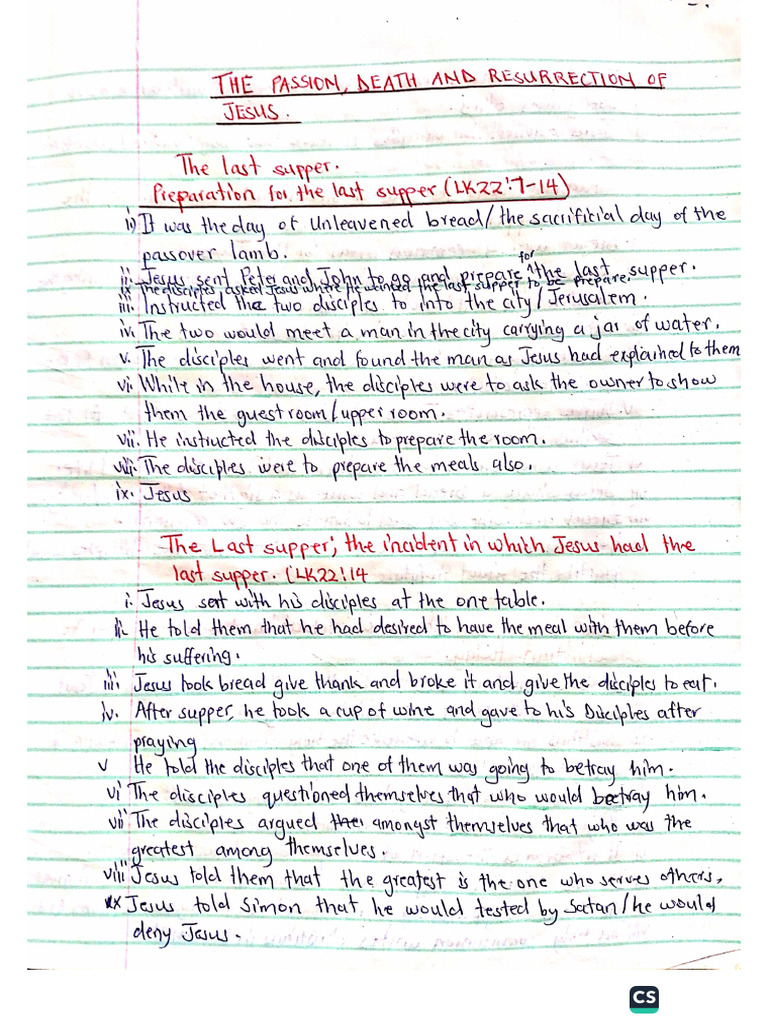 THE PASSION, DEATH AND RESURRECTION OF
JESUS.
The last supper.
Preparation for the last supper (LK22:7-14)
i) It was the day of Unleavened bread/the sacrifitial day of the
passover lamb.
ii. Jesus sent Peter and John to go and prepare for the last supper.
ii The disciples asked Jesus where he wanted the last supper to be prepare.
iii. Instructed the two disciples to into the city/Jerusalem.
iv. The two would meet a man in the city carrying a jar of water.
v. The disciples went and found the man as Jesus had explained to them
vi. While in the house, the disciples were to ask the owner to show
them the guest room/upper room.
vii. He instructed the disciples to prepare the room.
viii. The disciples were to prepare the meals also.
ix. Jesus
The Last supper; the incident in which Jesus had the
last supper. (LK22:14
i. Jesus sent with his disciples at the one table.
ii. He told them that he had desired to have the meal with them before
his suffering.
iii. Jesus took bread give thank and broke it and give the disciples to eat.
iv. After supper, he took a cup of wine and gave to his Disciples after
praying
v He told the disciples that one of them was going to betray him.
vi The disciples questioned themselves that who would betray him.
vii The disciples argued the amongst themselves that who was the
greatest among themselves.
viii Jesus told them that the greatest is the one who serves others,
ix Jesus told Simon that he would tested by Satan/he would
deny Jesus.
CS